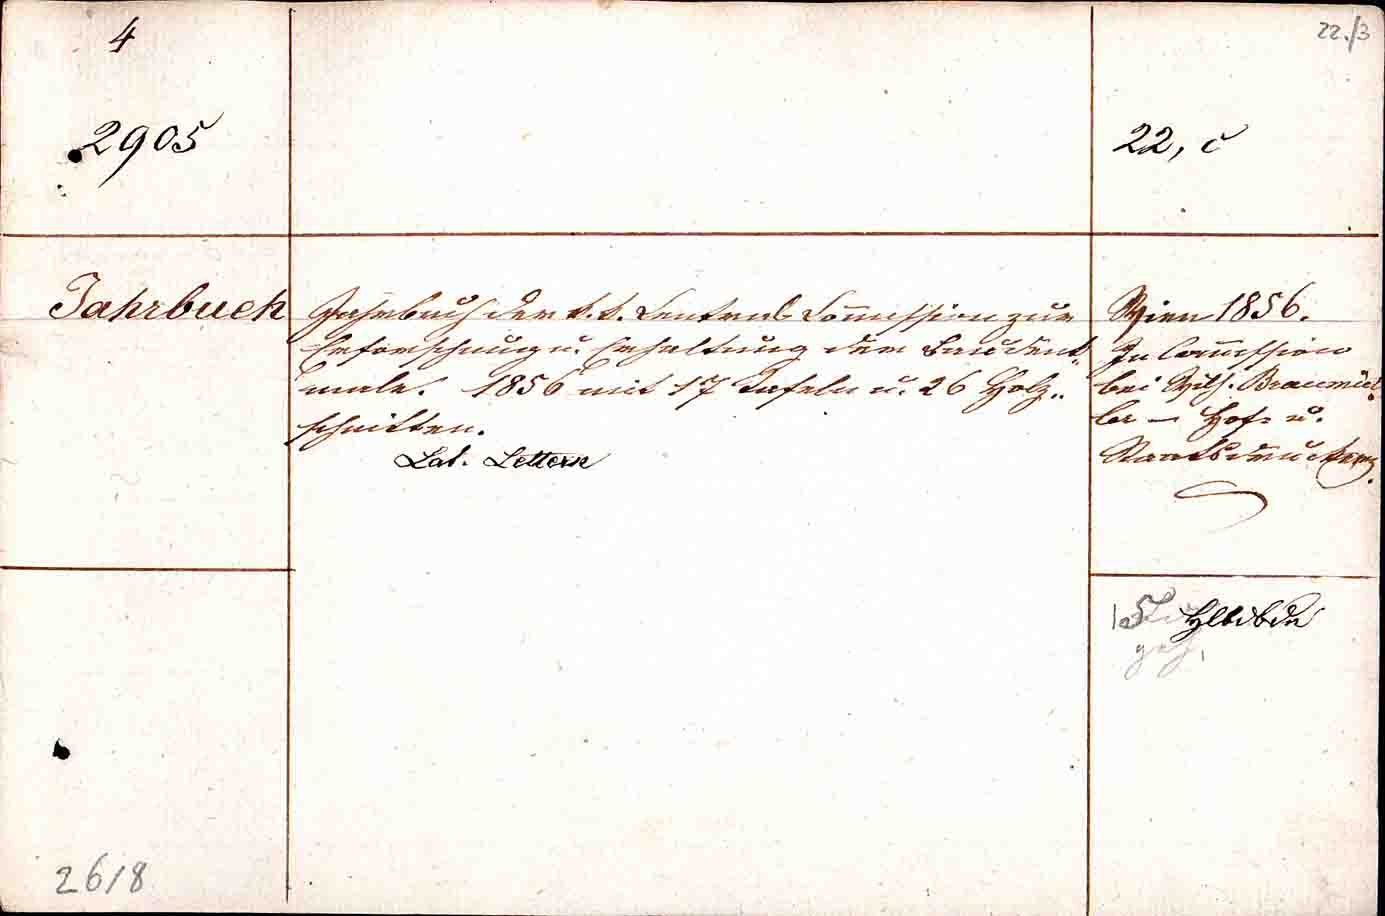 4
22./3
2905
22, c
Jahrbuch
Jahrbuch der k. k. Central-Com̅ission zur
Erforschung u. Erhaltung der Baudenk„
male. 1856 mit 17 Tafeln u. 26 Holz„
schnitten.
Lat. Lettern
Wien 1856.
In Com̅ission
bei Wilh. Braumül„
ler – Hof- u.
Staatsdruckerey.
Hlbdbdn
26/8